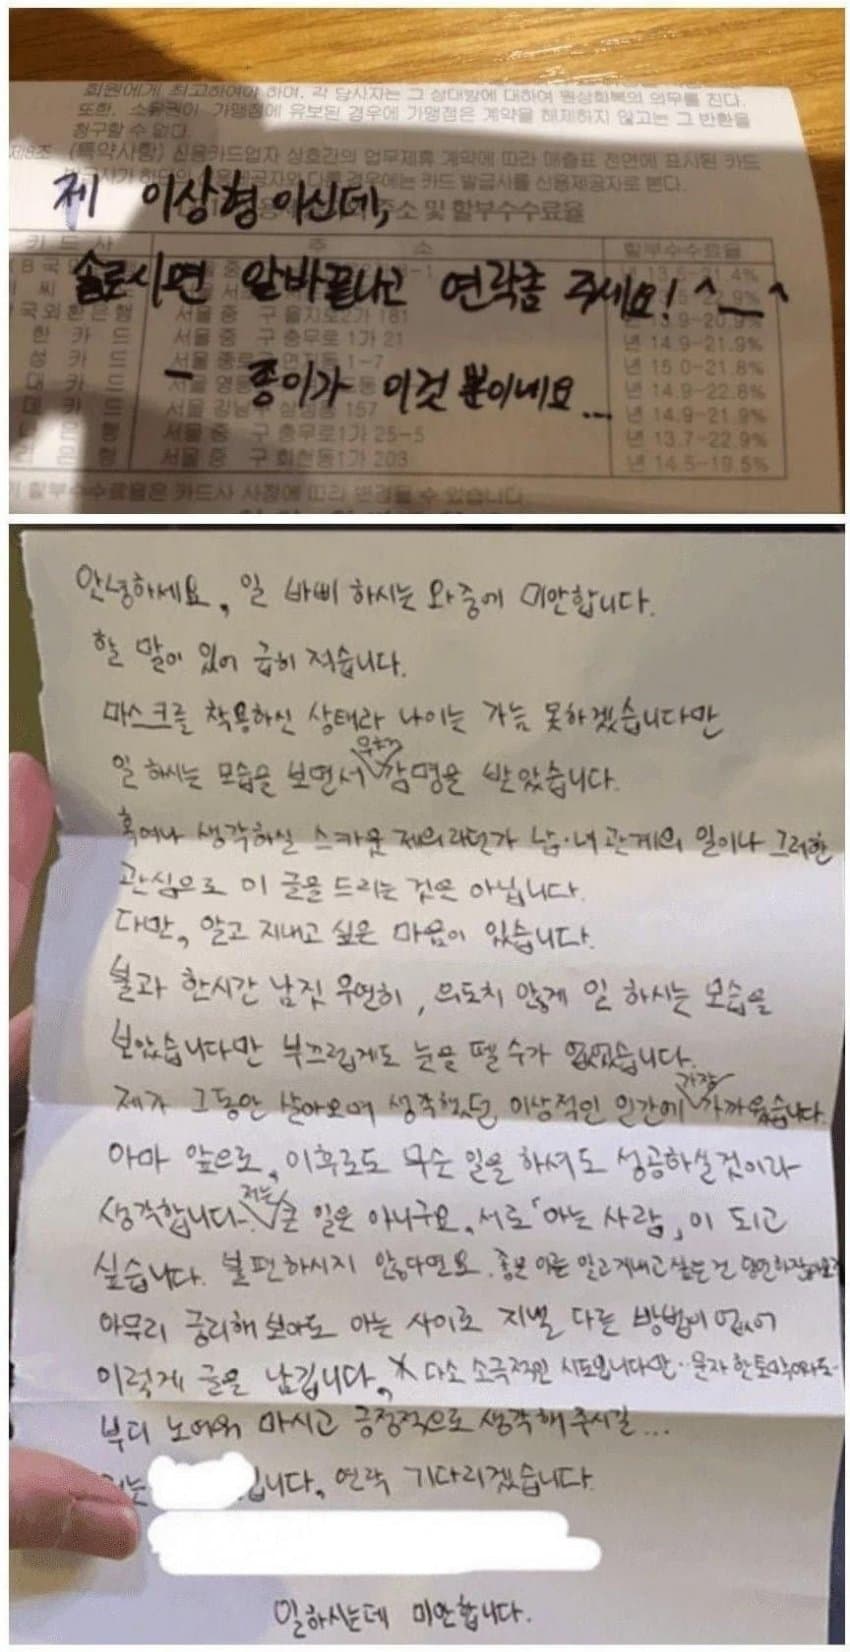 회원에게 최고하여야 하며, 각 당사자는 그 상대방에 대하여 원상회복의 의무를 진다.
또한, 소유권이 가맹점에 유보된 경우에 가맹점은 계약을 해제하지 않고는 그 반환을
청구할 수 없다.
(특약사항) 신용카드업자 상호간의 업무제휴 계약에 따라 매출표 전면에 표시된 카드
다른경우에는 카드 발급사를 신용제공자로 본다.
제 이상형이신데,
주소 및 할부수수료율
카드사 주 소 할부수수료율
솔로시면 알바끝나고 연락좀 주세요! ^__^
국외환은행 서울 중 구 을지로2가 181 년 13.9-20.9%
한 카 드 서울 중 구 충무로 1가 21 년 14.9-21.9%
성 카 드 서울 종로구 연지동 1-7 년 15.0-21.8%
- 종이가 이것 뿐이네요...
대 카 드 년 14.9-22.8%
데 카 드 서울 강남구 삼성동 157 년 14.9-21.9%
은 행 서울 중 구 충무로1가 25-5 년 13.7-22.9%
은 행 서울 중 구 회현동1가 203 년 14.5-19.5%
할부수수료율은 카드사 사정에 따라 변경될 수 있습니다
안녕하세요, 일 바삐 하시는 와중에 미안합니다.
할 말이 있어 급히 적습니다.
마스크를 착용하신 상태라 나이는 가늠 못하겠습니다만
일 하시는 모습을 보면서 감명을 받았습니다.
혹여나 생각하실 스카웃 제의라던가 남·녀 관계의 일이나 그러한
관심으로 이 글을 드리는 것은 아닙니다.
다만, 알고 지내고 싶은 마음이 있습니다.
불과 한시간 남짓 우연히, 의도치 않게 일 하시는 모습을
보았습니다만 부끄럽게도 눈을 뗄 수가 없었습니다.
제가 그동안 살아오며 생각했던 이상적인 인간에 가장 가까웠습니다.
아마 앞으로, 이후로도 무슨 일을 하셔도 성공하실것이라
생각합니다. 저는 큰 일은 아니구요, 서로「아는 사람」이 되고
싶습니다. 불편하시지 않다면요. 좋은 이를 알고지내고 싶은건 당연하잖아요?
아무리 궁리해 보아도 아는 사이로 지낼 다른 방법이 없어
이렇게 글을 남깁니다, 다소 소극적인 시도입니다만.. 문자 한통이라도..
부디 노여워 마시고 긍정적으로 생각해 주시길...
저는 입니다. 연락 기다리겠습니다.
일하시는데 미안합니다.